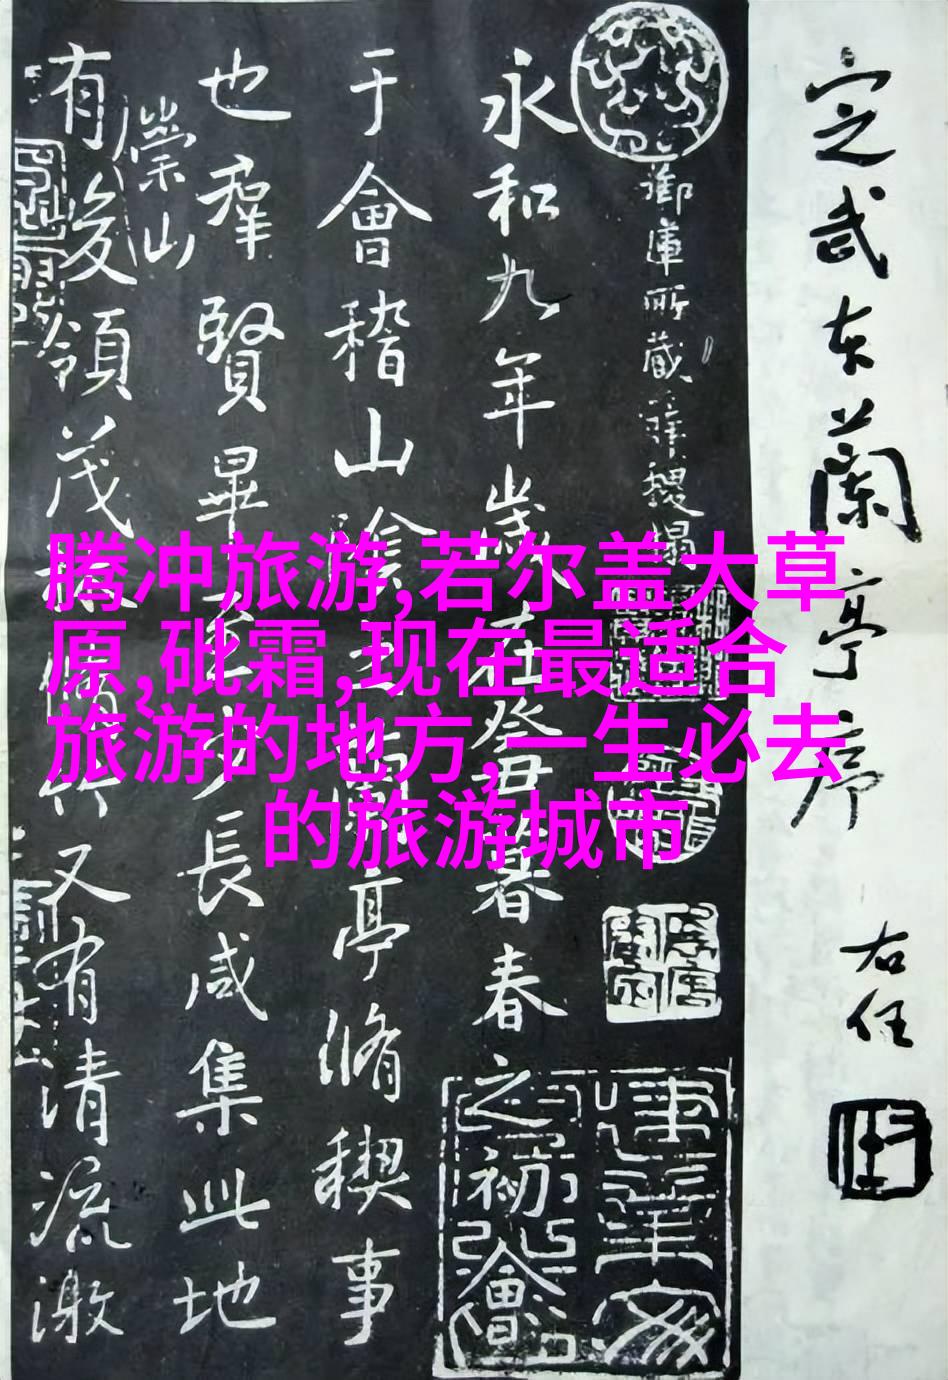 定武本蘭亭序
右任
御庫所藏
永和九年歲在癸丑暮春之初會
于會稽山陰之蘭亭脩稧事
也羣賢畢至少長咸集此地
有崇山
峻領茂林脩竹又有清流激
腾冲旅游,若尔盖大草
原,砒霜,现在最适合
旅游的地方,一生必去
的旅游城市